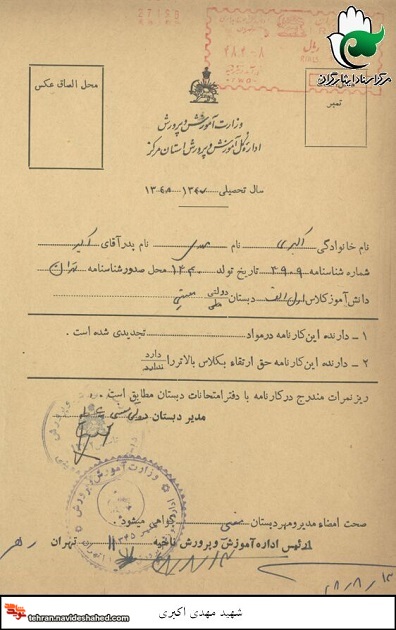 مرکز اسناد ایثارگران
محل الصاق عکس
ریال
تمبر
وزارت آموزش و پرورش
اداره کل آموزش و پرورش استان مرکز
سال تحصیلی
نام خانوادگی اکبری نام مهدی نام پدر آقای اکبر
شماره شناسنامه ۴۹۰۹ تاریخ تولد محل صدور شناسنامه تهران
دانش آموز کلاس اول الف دبستان دولتی ملی
۱ - دارنده این کارنامه در مواد تجدیدی شده است .
۲ - دارنده این کارنامه حق ارتقاء بکلاس بالاتر را دارد ندارد
ریز نمرات مندرج در کارنامه با دفتر امتحانات دبستان مطابق است .
مدیر دبستان دولتی
وزارت آموزش و پرورش
صحت امضاء مدیر و مهر دبستان گواهی میشود .
رئیس اداره آموزش و پرورش ناحیه ۱۱ تهران
شهید مهدی اکبری
tehran.navideshahed.com